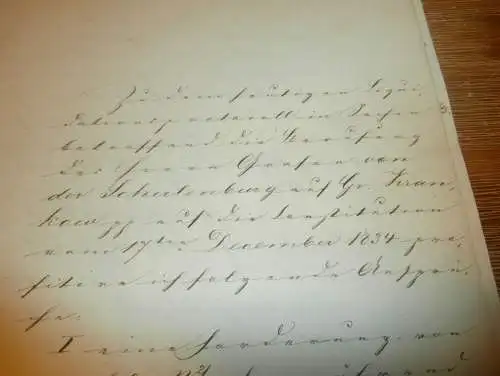 Zu dem heutigen Liqui-
dations protocoll in Sachen
betreffend die Berufung
des Herrn Grafen von
der Schulenburg auf Gr. Kran-
kow pp auf die Constitution
vom 17ten December 1834 pro-
fitire ich folgende Ansprü-
che:
I eine Forderung von